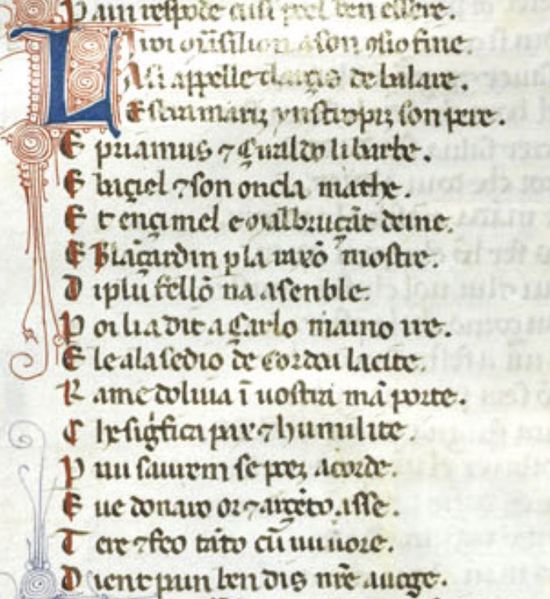 P ain respōde cusi poel ben essere.
L i roi ōusilion a son ɔsio fine.
A si appelle clargis de balaire.
E stramariz ynstropiz son pere.
E priamus ⁊ Gualdo li barbe.
E bagiel ⁊ son oncla mathe.
E t ençimel e
E blāçardin p la raxō nostre.
D iplu fellō na asenble.
P oi li a dit a Carlo maino ire.
E le alasedio de cordoa la cite.
R ame doliua ī uostri mā porte.
C he sigfica pax ⁊ humilite
P uu saurem se poez acorde.
E ue donaro or ⁊ arçēto asse.
T ere ⁊ feo tāto cū uu uore.
D ient pain ben dis nr̄e auoge.